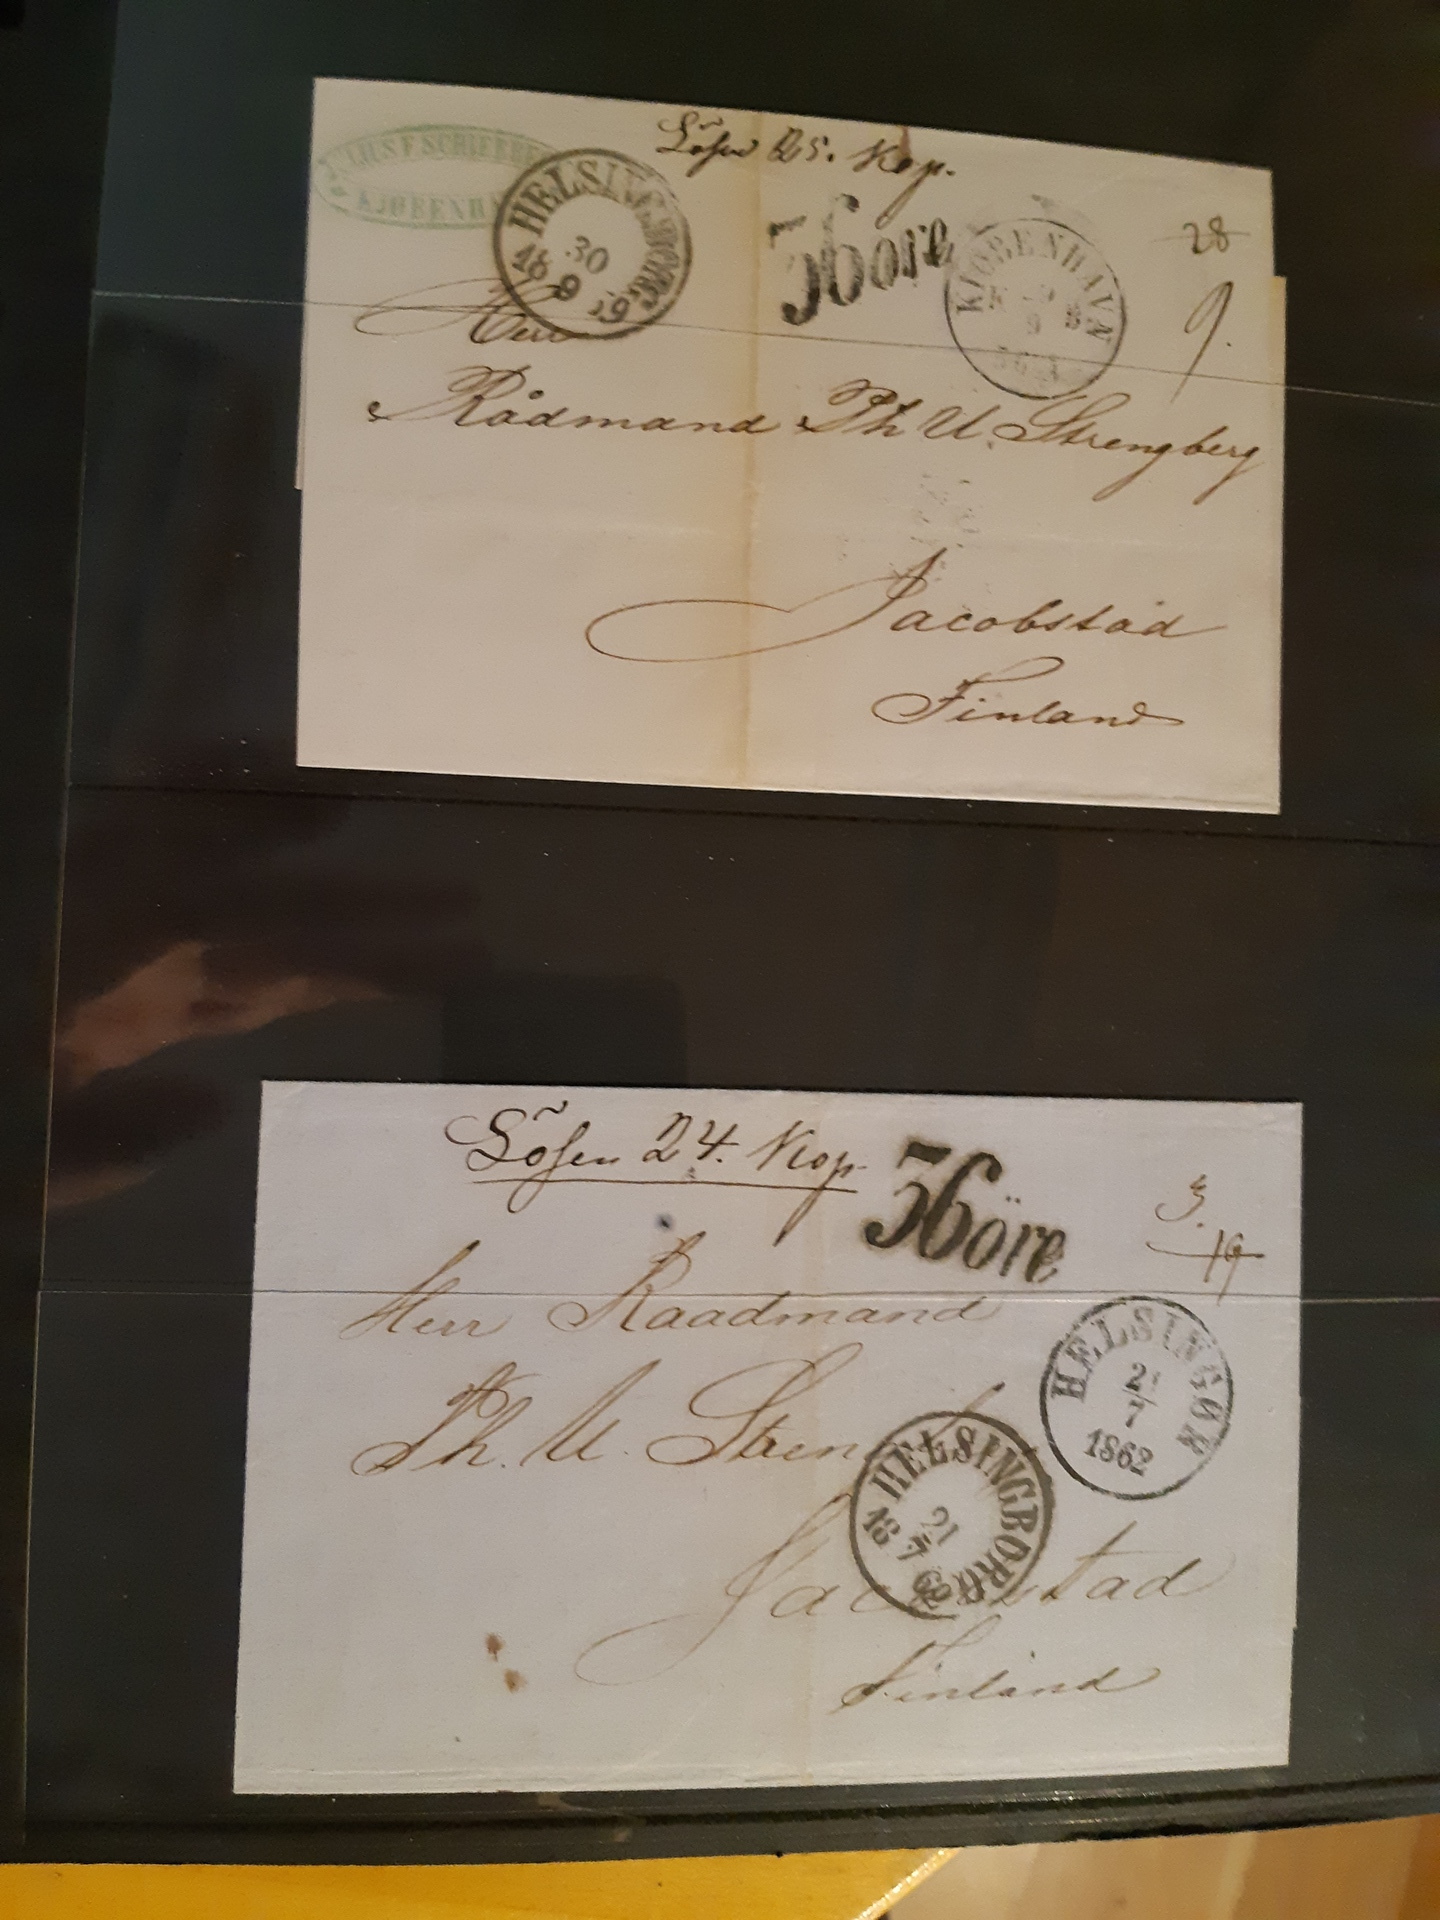 Lösen 25. Kop.
KJØBENH
HELSINGBORG
30
18 9
36 öre
KIØBENHAVN
28
9.
Herr
Rådmand Ph U. Strengberg
Jacobstad
Finland
Lösen 24. Kop.
36 öre
3.
19
Herr Raadmand
HELSINGØR
21
7
1862
Ph. U. Stren
HELSINGBORG
21
18 7 62
Ja stad
Finland